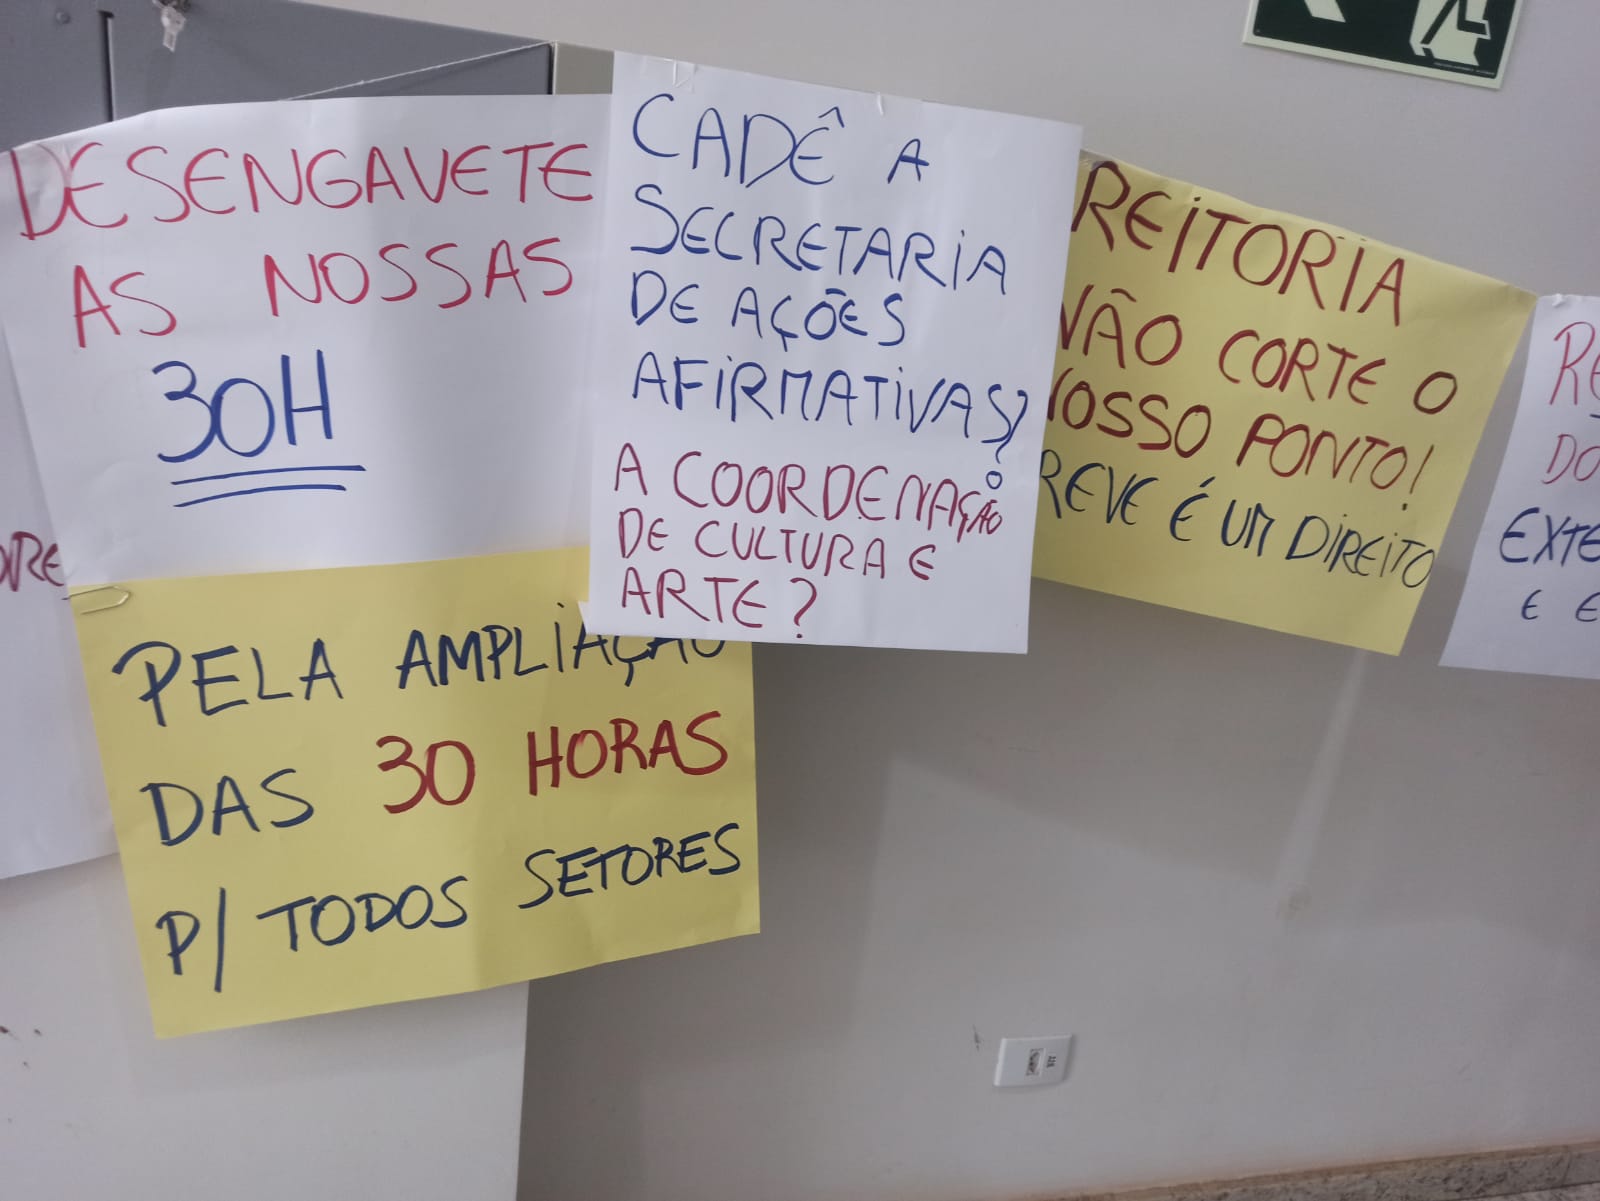 DESENGAVETE
AS NOSSAS
30H
PELA AMPLIAÇÃO
DAS 30 HORAS
P/ TODOS SETORES
CADÊ A
SECRETARIA
DE AÇÕES
AFIRMATIVAS?
A COORDENAÇÃO
DE CULTURA E
ARTE?
REITORIA
NÃO CORTE O
NOSSO PONTO!
REVE É UM DIREITO
RE
DO
EXTE
E E